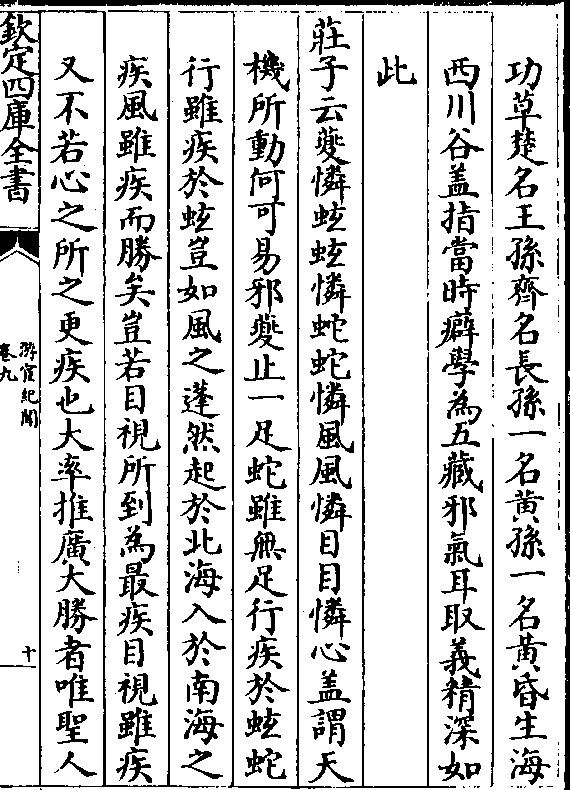 功草楚名王孫齊名長孫一名黄孫一名黄昏生海
西川谷盖指當時癖學為五藏邪氣耳取義精深如
此
莊子云夔憐蚿蚿憐蛇蛇憐風風憐目目憐心盖謂天
機所動何可易邪夔止一足蛇雖無足行疾於蚿蛇
行雖疾於蚿豈如風之蓬然起於北海入於南海之
疾風雖疾而勝矣豈若目視所到為最疾目視雖疾
又不若心之所之更疾也大率推廣大勝者唯聖人
欽定四庫全書
游宦紀聞
卷九
十